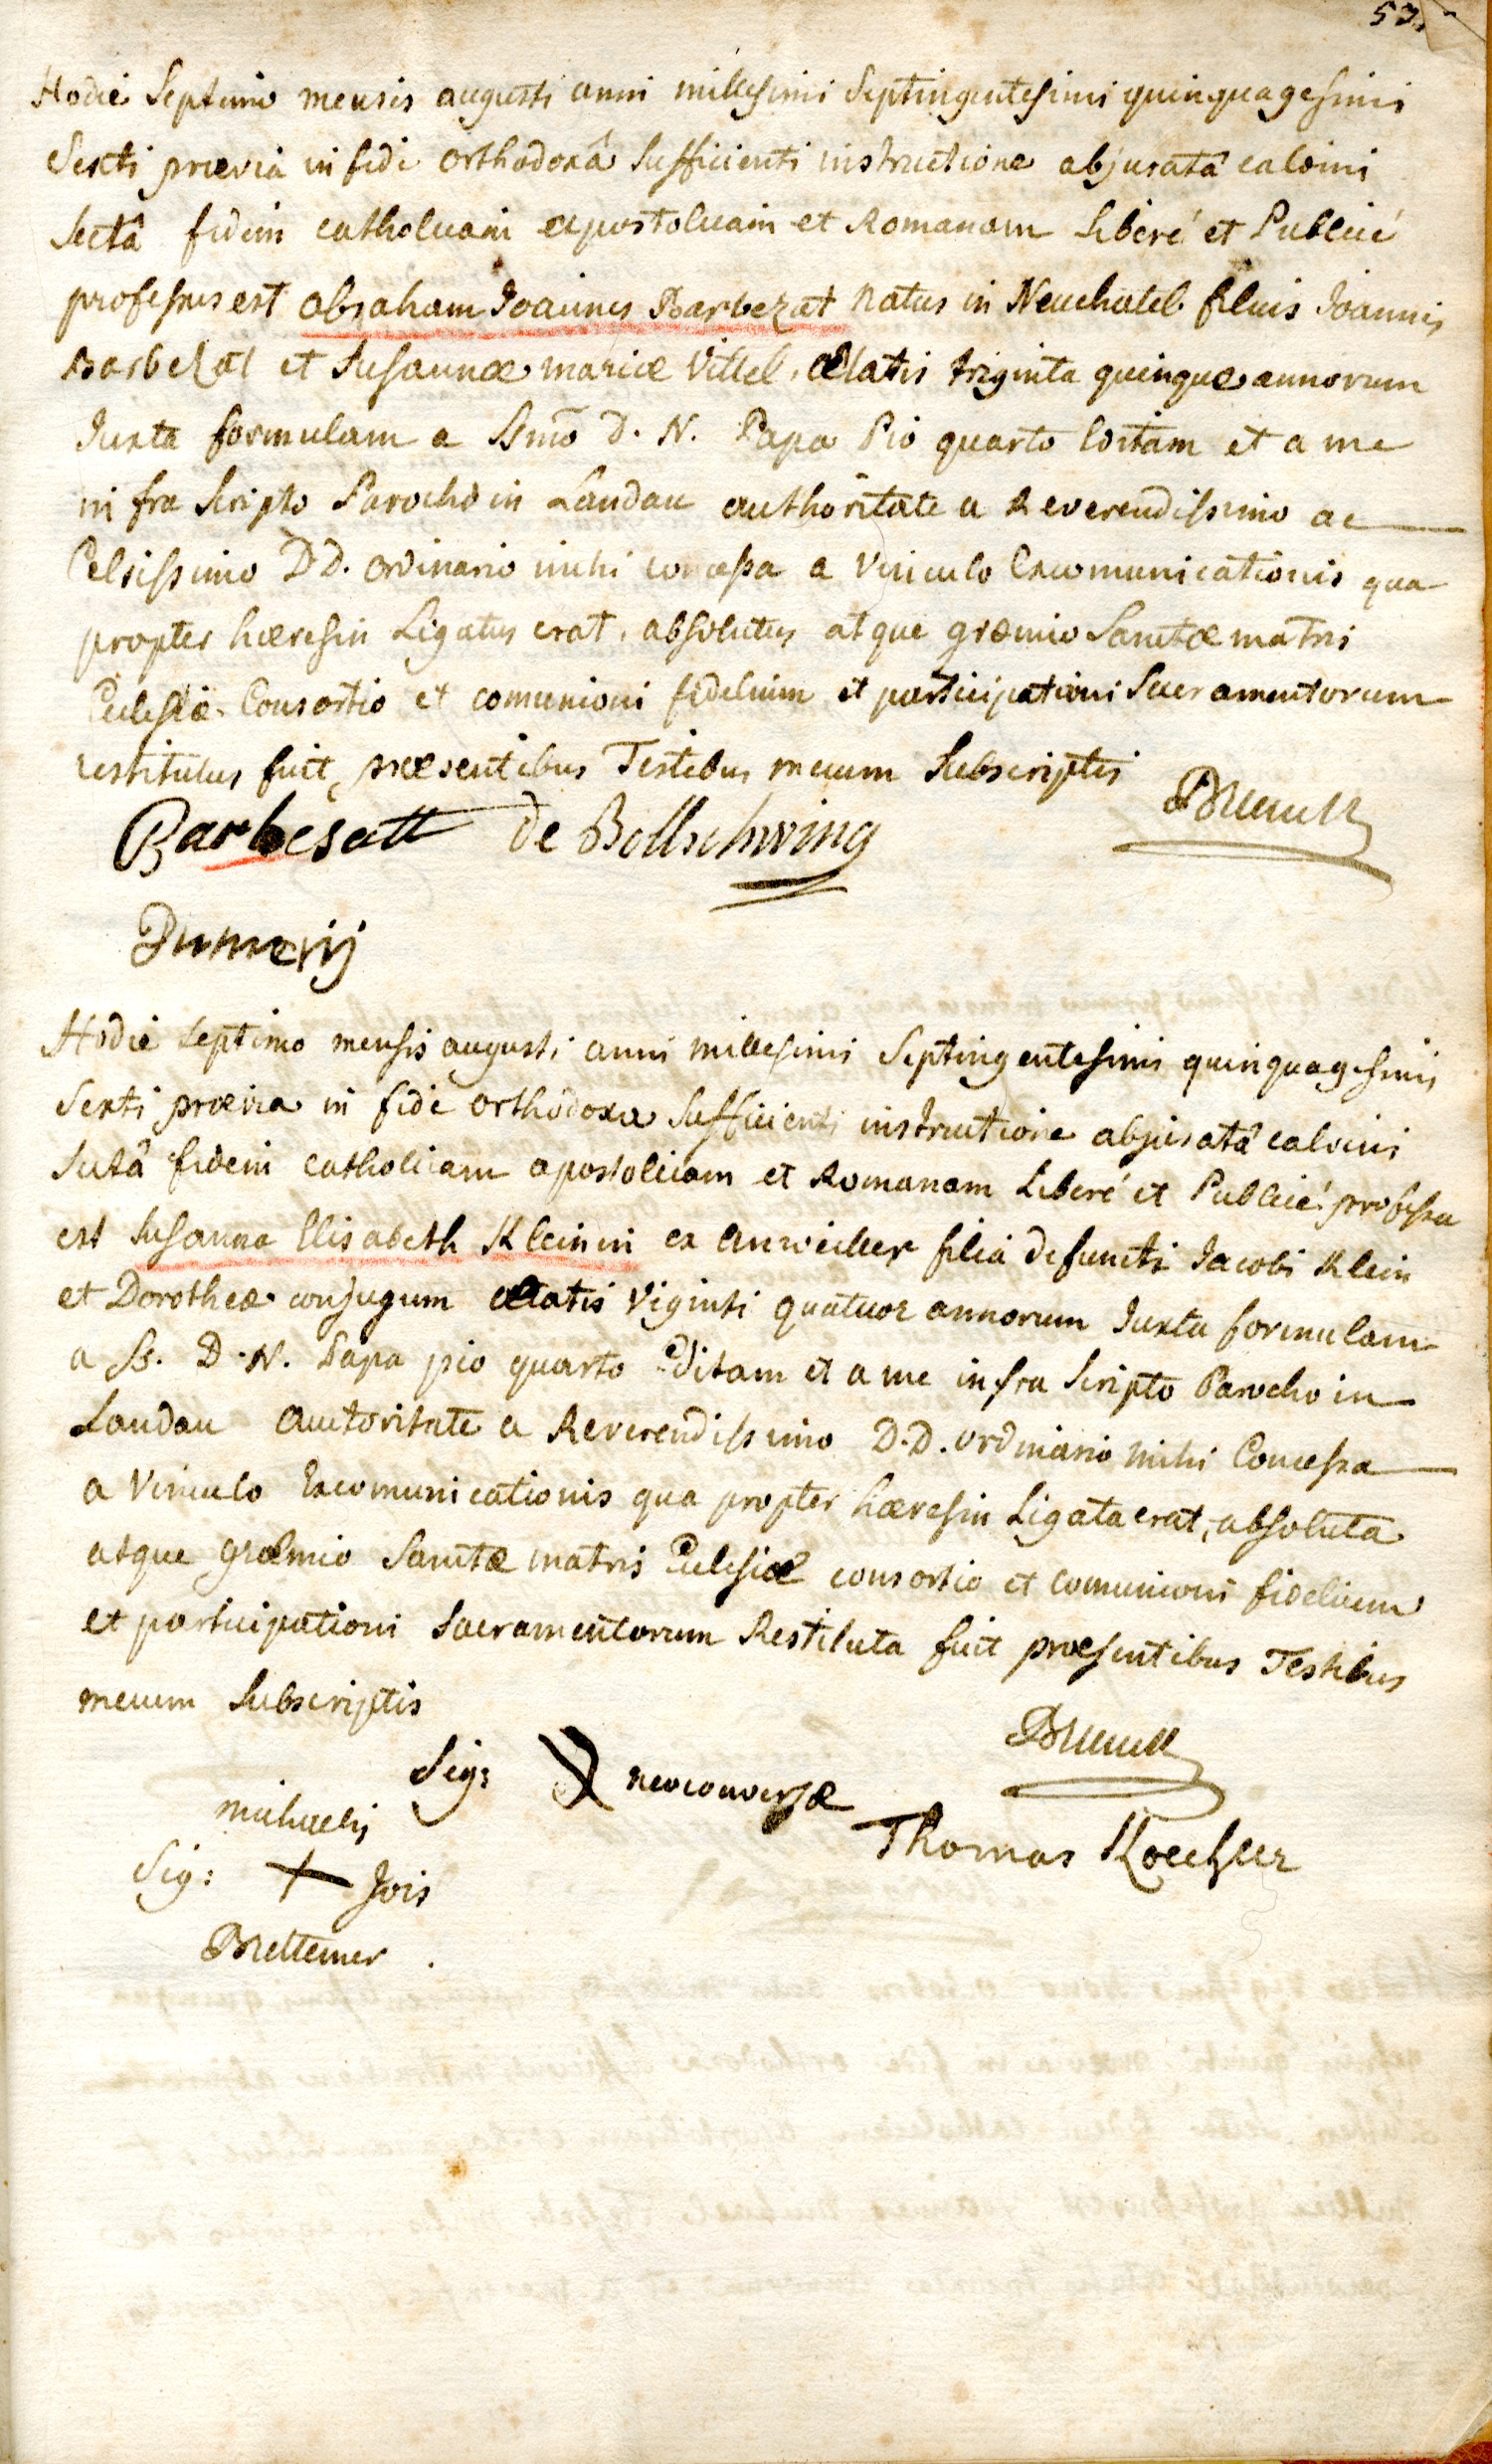 53.
Hodie Septimo mensis augusti anni millesimi Septingentesimi quinquagesimi
Sexti prævia in fide orthodoxâ Sufficienti instructione abjuratâ calvini
sectâ fidem catholicam apostolicam et Romanam Liberé et Publicé
professus est abraham Joannes Barbezat natus in Neuchatel filius Joannis
Barbezat et Susannæ mariæ Vittel, ætatis triginta quinque annorum
Juxta formulam a Ssmō D. N. Papa Pio quarto Editam et a me
infra scripto Parocho in Landau authoritate a Reverendissimo ac
Celsissimo DD. ordinario mihi concessa a Vinculo Excomunicationis qua
propter hæresin Ligatus erat, absolutus atque græmio Sanctæ matris
Ecclesiæ Consortio et comunioni fidelium et participationi Sacramentorum
restitutus fuit, præsentibus Testibus mecum Subscriptis
Barbesatt de Bollschwing
Hodie septimo mensis augusti anni millesimi Septingentesimi quinquagesimi
Sexti prævia in fide orthodoxa Sufficienti instructione abjuratâ calvini
Sectâ fidem catholicam apostolicam et Romanam Liberé et Publicé professa
est Susanna Elisabeth Kleinin ex Anweiller filia defuncti Jacobi Klein
et Dorotheæ conjugum ætatis Viginti quatuor annorum Juxta formulam
a Ss. D. N. Papa pio quarto Editam et a me infra scripto Parocho in
Landau auctoritate a Reverendissimo D.D. ordinario mihi Concessa
a Vinculo Excomunicationis qua propter hæresin Ligata erat, absoluta
atque græmio Sanctæ matris Ecclesiæ consortio et comunioni fidelium
et participationi Sacramentorum Restituta fuit præsentibus Testibus
mecum Subscriptis
Sig: neoconversæ
michaelis
Thomas Koechler
Sig: + Jois
Brettemer .